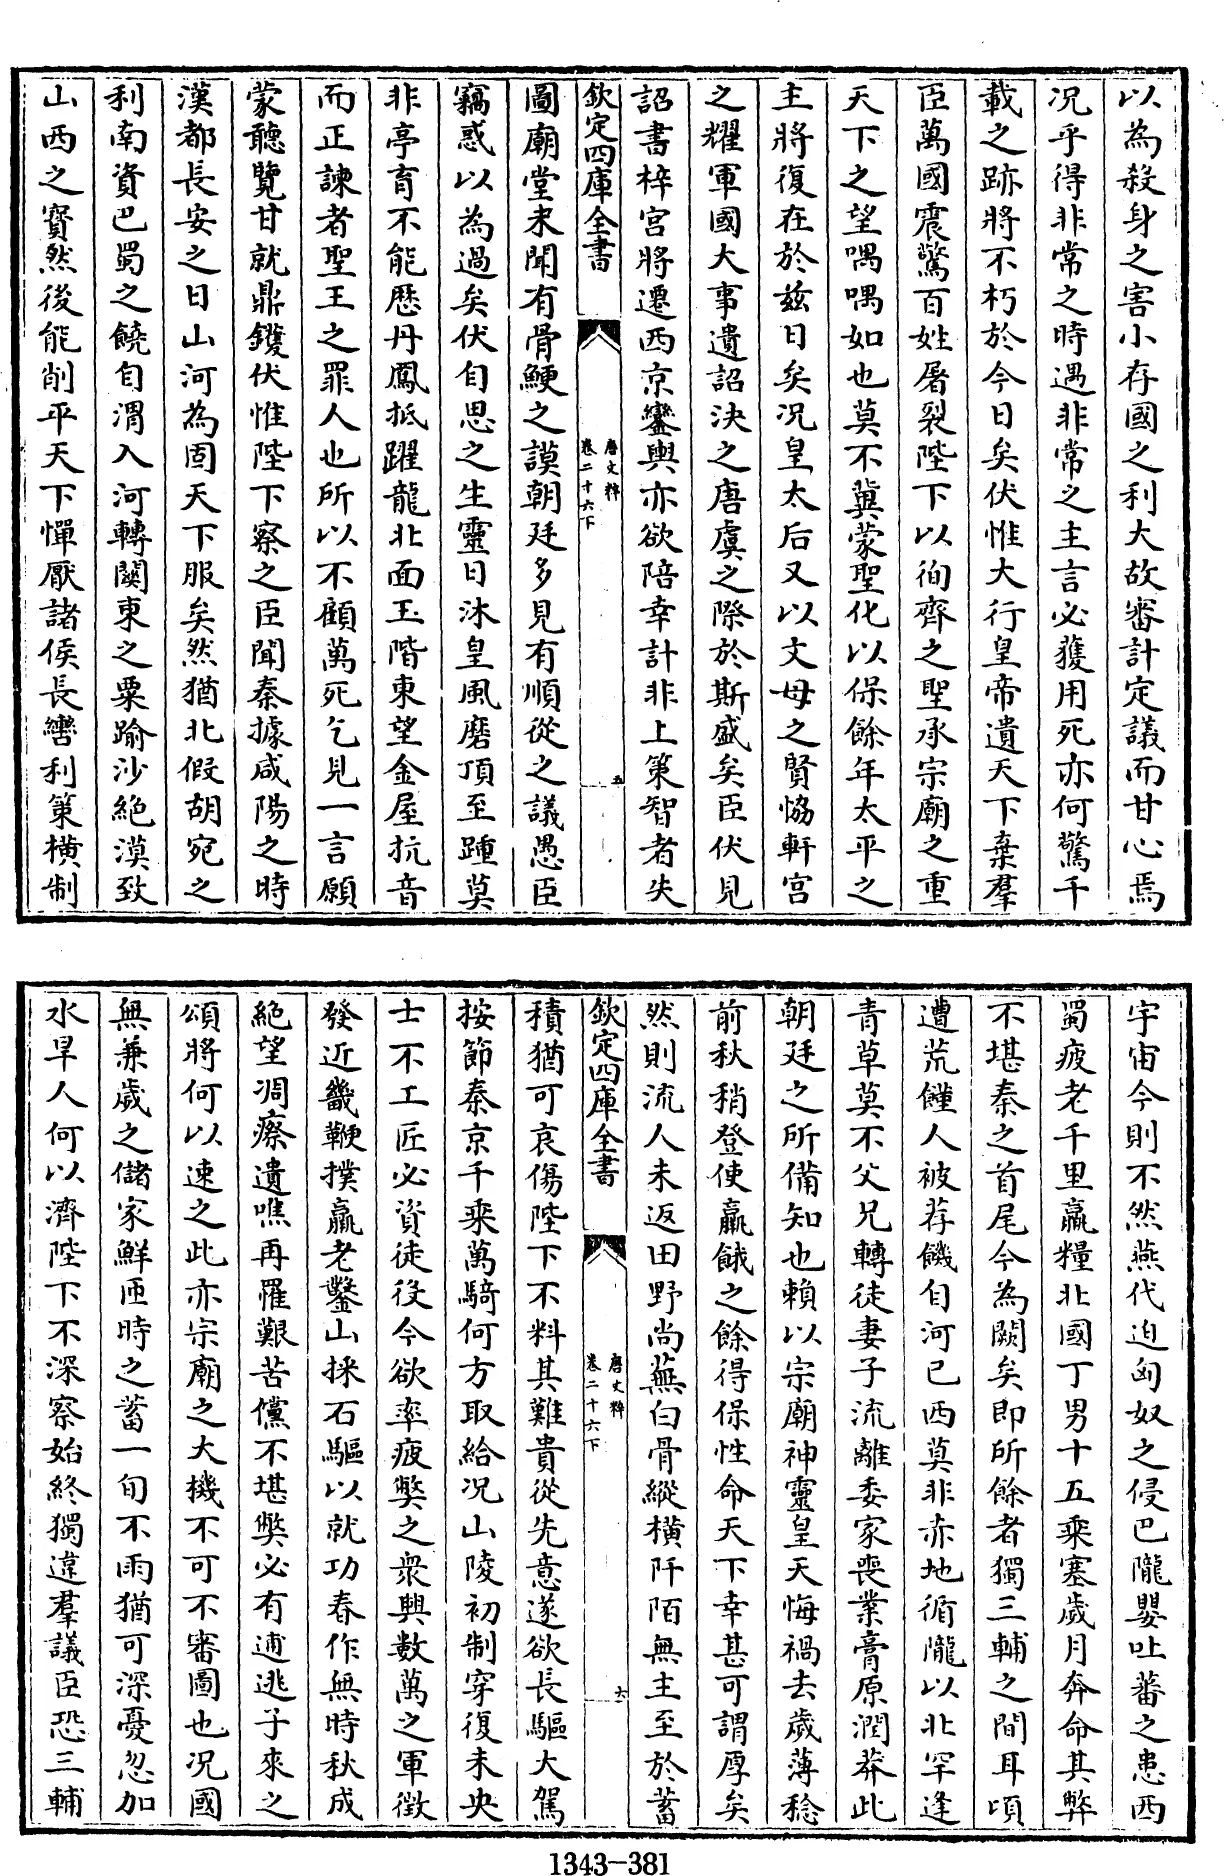 以為殺身之害小存國之利大故審計定議而甘心焉
況乎得非常之時遇非常之主言必獲用死亦何驚千
載之跡將不朽於今日矣伏惟大行皇帝遺天下棄羣
臣萬國震驚百姓屠裂陛下以徇齊之聖承宗廟之重
天下之望喁喁如也莫不冀蒙聖化以保餘年太平之
主將復在於兹日矣况皇太后又以文母之賢恊軒宫
之耀軍國大事遺詔決之唐虞之際於斯盛矣臣伏見
詔書梓宫將遷西京鑾輿亦欲陪幸計非上策智者失
欽定四庫全書
唐文粹
卷二十六下
五
圖廟堂未聞有骨鯁之謨朝廷多見有順從之議愚臣
竊惑以為過矣伏自思之生靈日沐皇風磨頂至踵莫
非亭育不能歴丹鳳抵躍龍北面玉階東望金屋抗音
而正諫者聖王之罪人也所以不顧萬死乞見一言願
蒙聽覽甘就鼎鑊伏惟陛下察之臣聞秦據咸陽之時
漢都長安之日山河為固天下服矣然猶北假胡宛之
利南資巴蜀之饒自渭入河轉關東之粟踰沙絶漠致
山西之寳然後能削平天下憚厭諸侯長轡利策横制
宇宙今則不然燕代迫匈奴之侵巴隴嬰吐蕃之患西
蜀疲老千里羸糧北國丁男十五乘塞歲月奔命其弊
不堪秦之首尾今為闕矣即所餘者獨三輔之間耳頃
遭荒饉人被荐饑自河已西莫非赤地循隴以北罕逢
青草莫不父兄轉徙妻子流離委家喪業膏原潤莽此
朝廷之所備知也賴以宗廟神靈皇天悔禍去歲薄稔
前秋稍登使羸餓之餘得保性命天下幸甚可謂厚矣
然則流人未返田野尚蕪白骨縱横阡陌無主至於蓄
欽定四庫全書
唐文粹
卷二十六下
六
積猶可哀傷陛下不料其難貴從先意遂欲長驅大駕
按節秦京千乘萬騎何方取給况山陵初制穿復未央
士不工匠必資徒役今欲率疲弊之衆興數萬之軍徴
發近畿鞭撲羸老鑿山採石驅以就功春作無時秋成
絶望凋瘵遺噍再罹艱苦儻不堪弊必有逋逃子來之
頌將何以速之此亦宗廟之大機不可不審圖也况國
無兼歲之儲家鮮匝時之蓄一旬不雨猶可深憂忽加
水旱人何以濟陛下不深察始終獨違羣議臣恐三輔
1343-381